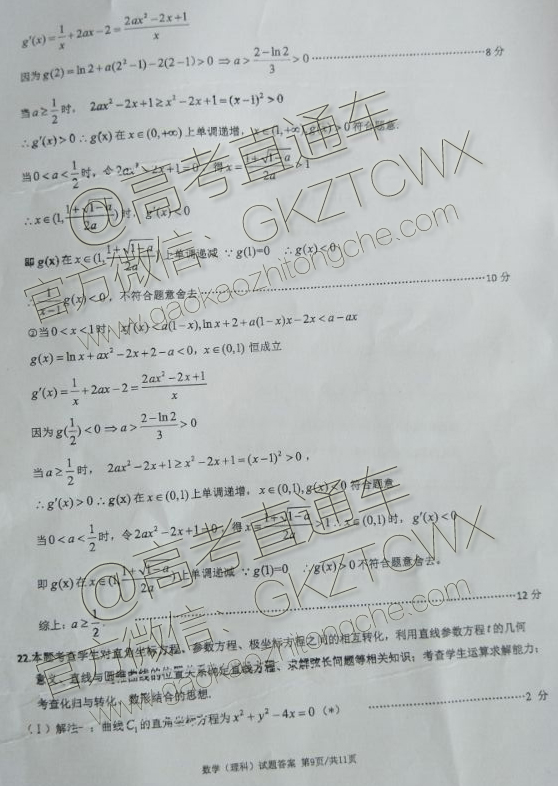 g'(x)=1/x+2ax-2=(2ax²-2x+1)/x
因为g(2)=ln2+a(2²-1)-2(2-1)>0 ⇒a>(2-ln2)/3>0 ……8分
当a≥1/2时, 2ax²-2x+1≥x²-2x+1=(x-1)²>0
∴g'(x)>0 ∴g(x)在x∈(0,+∞)上单调递增, x∈(1,+∞), g(x)>0符合题意.
当0<a<1/2时,令2ax²-2x+1=0 得x=(1+√1-a)/2a>1
∴x∈(1,(1+√1-a)/2a)时, g'(x)<0
即g(x)在x∈(1,(1+√1-a)/2a)上单调递减 ∵g(1)=0 ∴g(x)<0
1/(x-1)g(x)<0, 不符合题意舍去 ……10分
②当0<x<1时, xf(x)<a(1-x),lnx+2+a(1-x)x-2x<a-ax
g(x)=lnx+ax²-2x+2-a<0, x∈(0,1)恒成立
g'(x)=1/x+2ax-2=(2ax²-2x+1)/x
因为g(1/2)<0⇒a>(2-ln2)/3>0
当a≥1/2时, 2ax²-2x+1≥x²-2x+1=(x-1)²>0,
∴g'(x)>0 ∴g(x)在x∈(0,1)上单调递增, x∈(0,1),g(x)<0符合题意
当0<a<1/2时,令2ax²-2x+1=0,得x=(1+√1-a)/2a>1∴x∈(0,1)时, g'(x)<0
即g(x)在x∈(1,(1+√1-a)/2a)上单调递减 ∵g(1)=0 ∴g(x)>0不符合题意舍去。
综上:a≥1/2. ……12分
22.本题考查学生对直角坐标方程、参数方程、极坐标方程之间的相互转化,利用直线参数方程t的几何
意义、直线与圆锥曲线的位置关系确定直线方程、求解弦长问题等相关知识;考查学生运算求解能力;
考查化归与转化、数形结合的思想.
(1)解法一:曲线C₁的直角坐标方程为x²+y²-4x=0 (*) ……2 分
数学(理科)试题答案 第9页/共11页
@高考直通车
官方微信:GKZTCWX
www.gaokaozhitongche.com
@高考直通车
官方微信:GKZTCWX
www.gaokaozhitongche.com